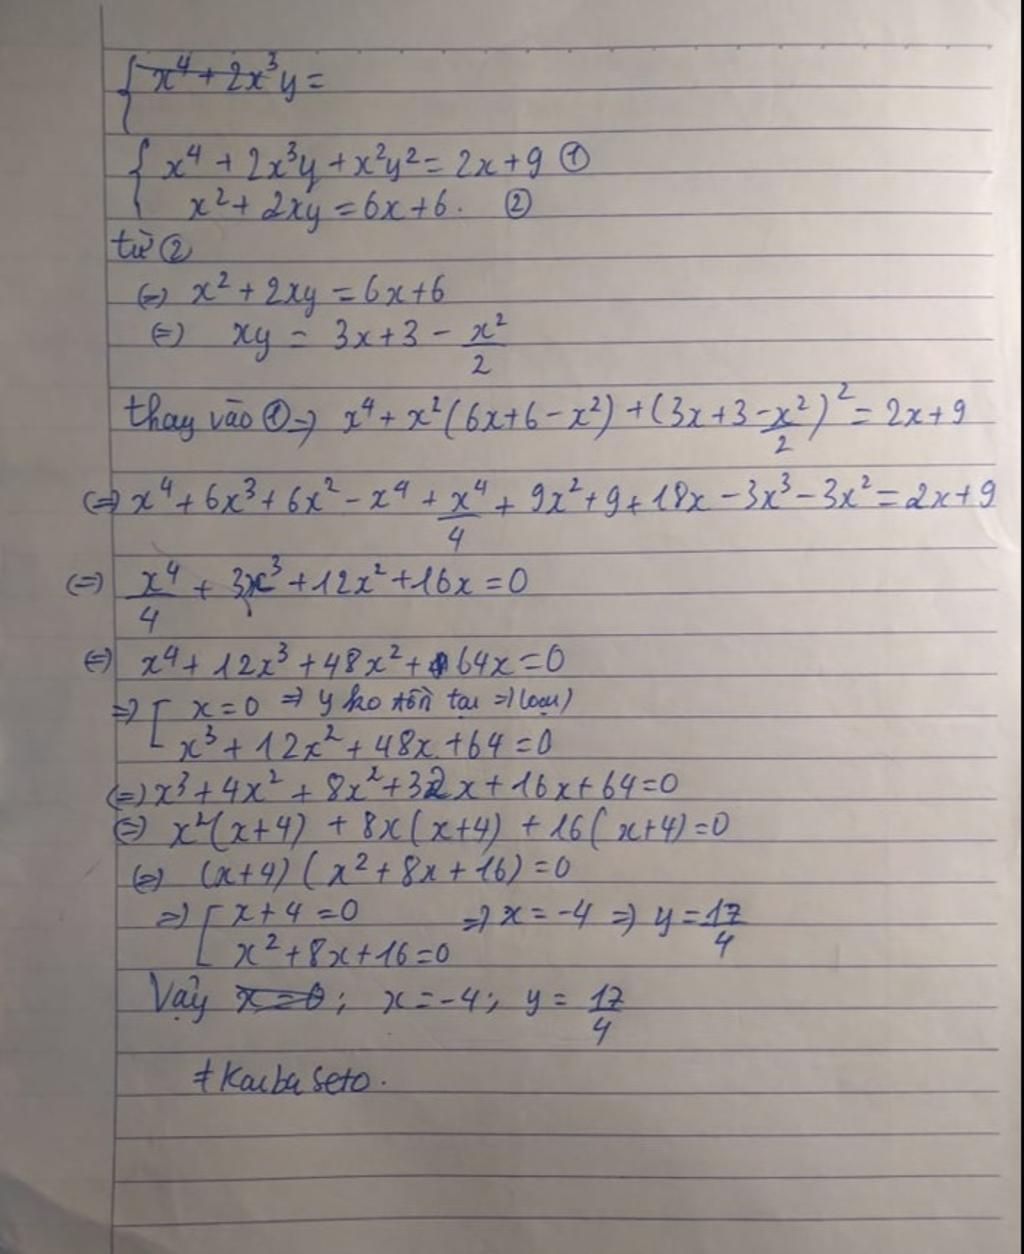 x⁴ + 2x³y =
x⁴ + 2x³y + x²y² = 2x + 9 ①
x² + 2xy = 6x + 6. ②
từ ②
(=) x² + 2xy = 6x + 6
(=) xy = 3x + 3 - x²/2
thay vào ① => x⁴ + x²(6x + 6 - x²) + (3x + 3 - x²/2)² = 2x + 9
(=) x⁴ + 6x³ + 6x² - x⁴ + x⁴/4 + 9x² + 9 + 18x - 3x³ - 3x² = 2x + 9
(=) x⁴/4 + 3x³ + 12x² + 16x = 0
(=) x⁴ + 12x³ + 48x² + 64x = 0
=> [ x = 0 => y ko tồn tại => loại)
x³ + 12x² + 48x + 64 = 0
(=) x³ + 4x² + 8x² + 32x + 16x + 64 = 0
(=) x²(x+4) + 8x(x+4) + 16(x+4) = 0
(=) (x+4)(x² + 8x + 16) = 0
=> [ x + 4 = 0 => x = -4 => y = 17/4
x² + 8x + 16 = 0
Vậy x = 0; x = -4; y = 17/4
#Kaiba Seto.